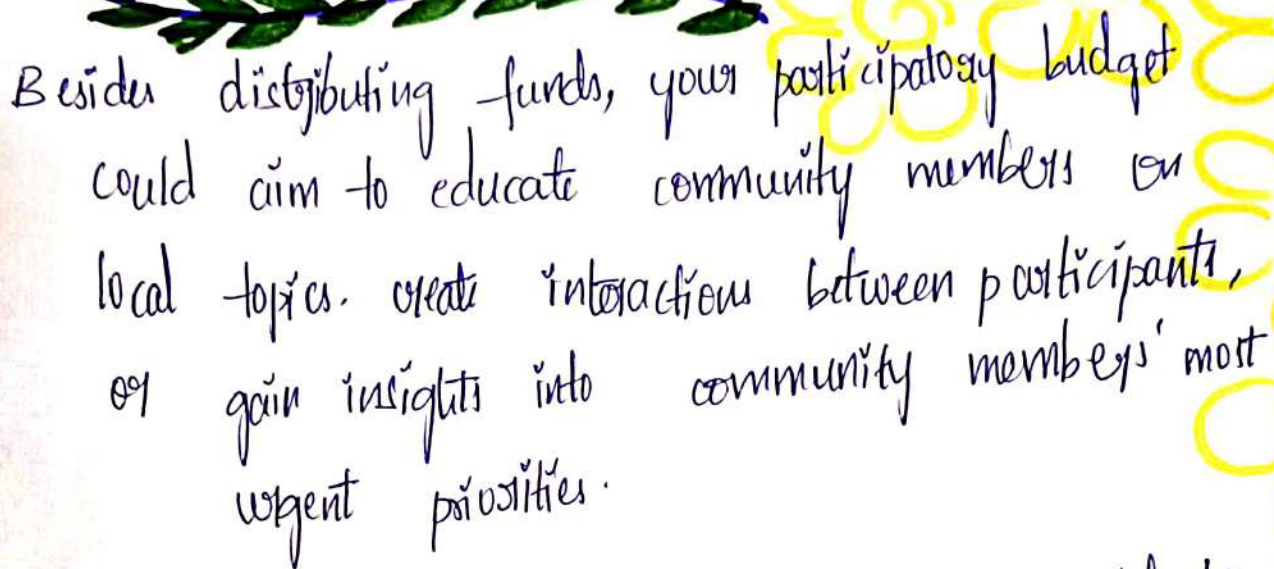 Besides distributing funds, your participatory budget
could aim to educate community members on
local topics. create interactions between participants,
or gain insights into community members' most
urgent priorities.